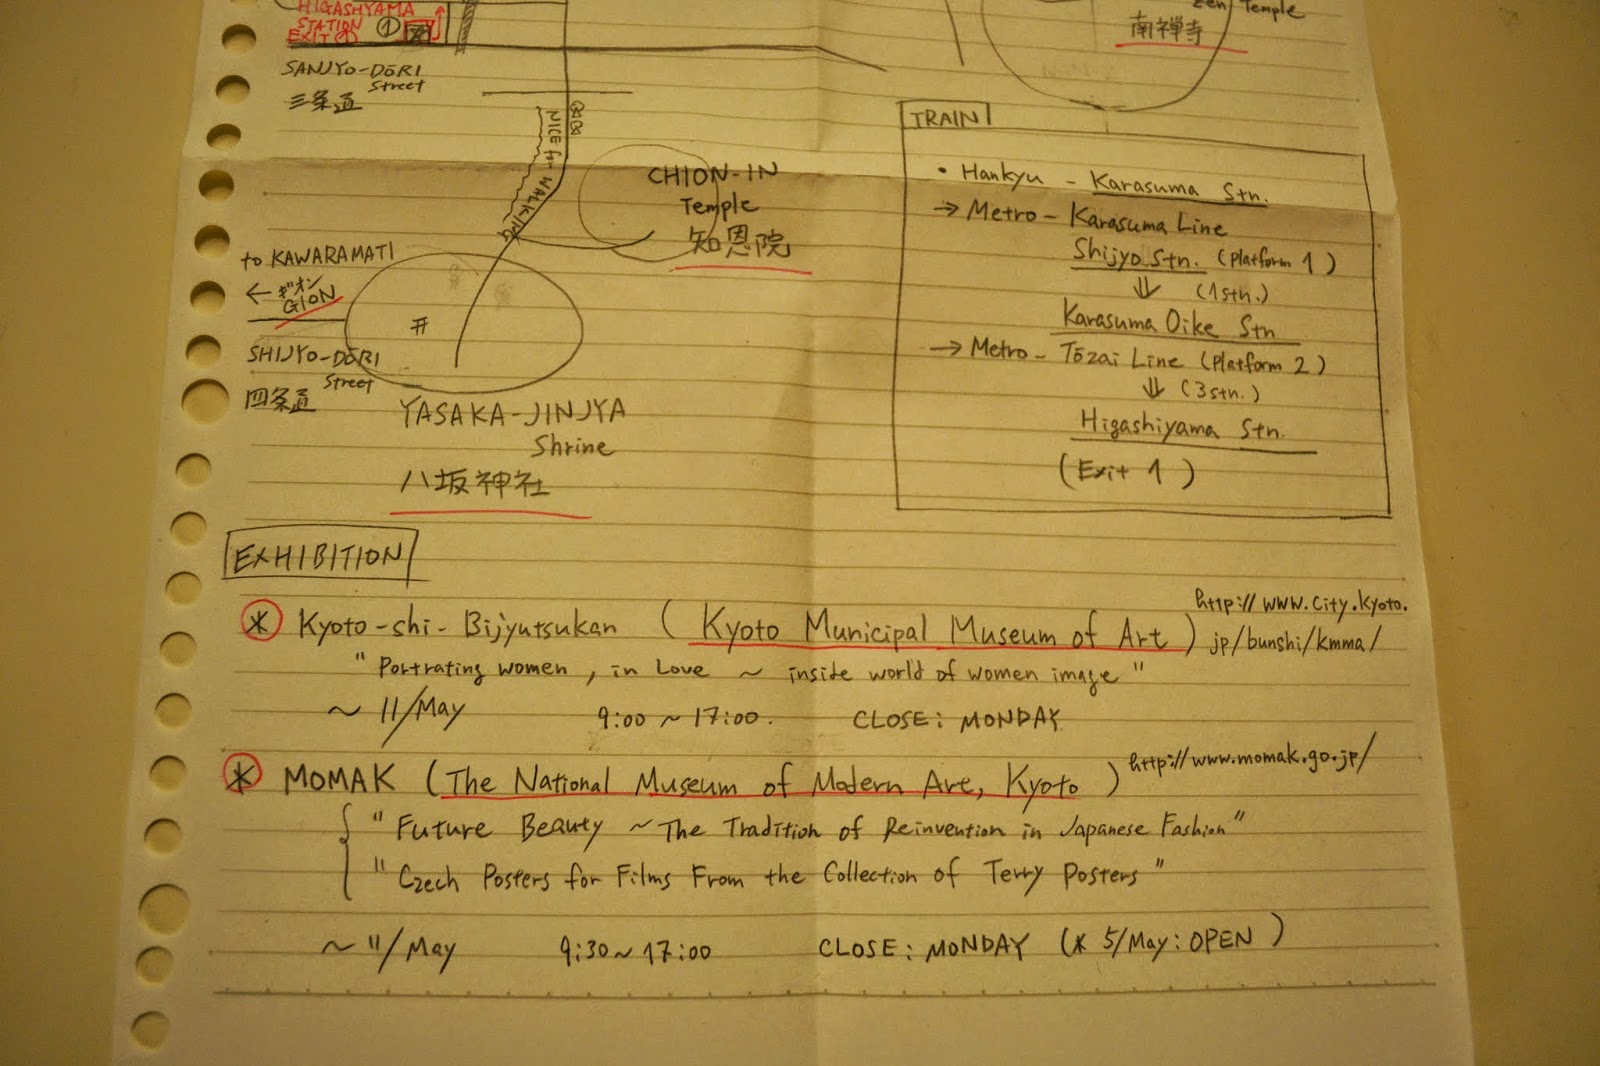 HIGASHYAMA
STATION
EXIT ①
①
Zen Temple
南禅寺
SANJYO-DŌRI
Street
三条道
NICE for WALKING
CHION-IN
Temple
知恩院
to KAWARAMATI
← ギオン
GION
SHIJYO-DŌRI
Street
四条道
YASAKA-JINJYA
Shrine
八坂神社
TRAIN
• Hankyu - Karasuma Stn.
→ Metro - Karasuma Line
Shijyo Stn. (Platform 1)
⇓ (1stn.)
Karasuma Oike Stn
→ Metro - Tōzai Line (Platform 2)
⇓ (3stn.)
Higashiyama Stn.
(Exit 1)
EXHIBITION
* Kyoto-shi-Bijyutsukan (Kyoto Municipal Museum of Art) http://www.city.kyoto.
jp/bunshi/kmma/
"Portrating women, in Love ~ inside world of women image"
~ 11/May 9:00 ~ 17:00. CLOSE: MONDAY
* MOMAK (The National Museum of Modern Art, Kyoto) http://www.momak.go.jp/
"Future Beauty ~ The Tradition of Reinvention in Japanese Fashion"
"Czech Posters for Films From the Collection of Terry Posters"
~ 11/May 9:30 ~ 17:00 CLOSE: MONDAY (* 5/May: OPEN)